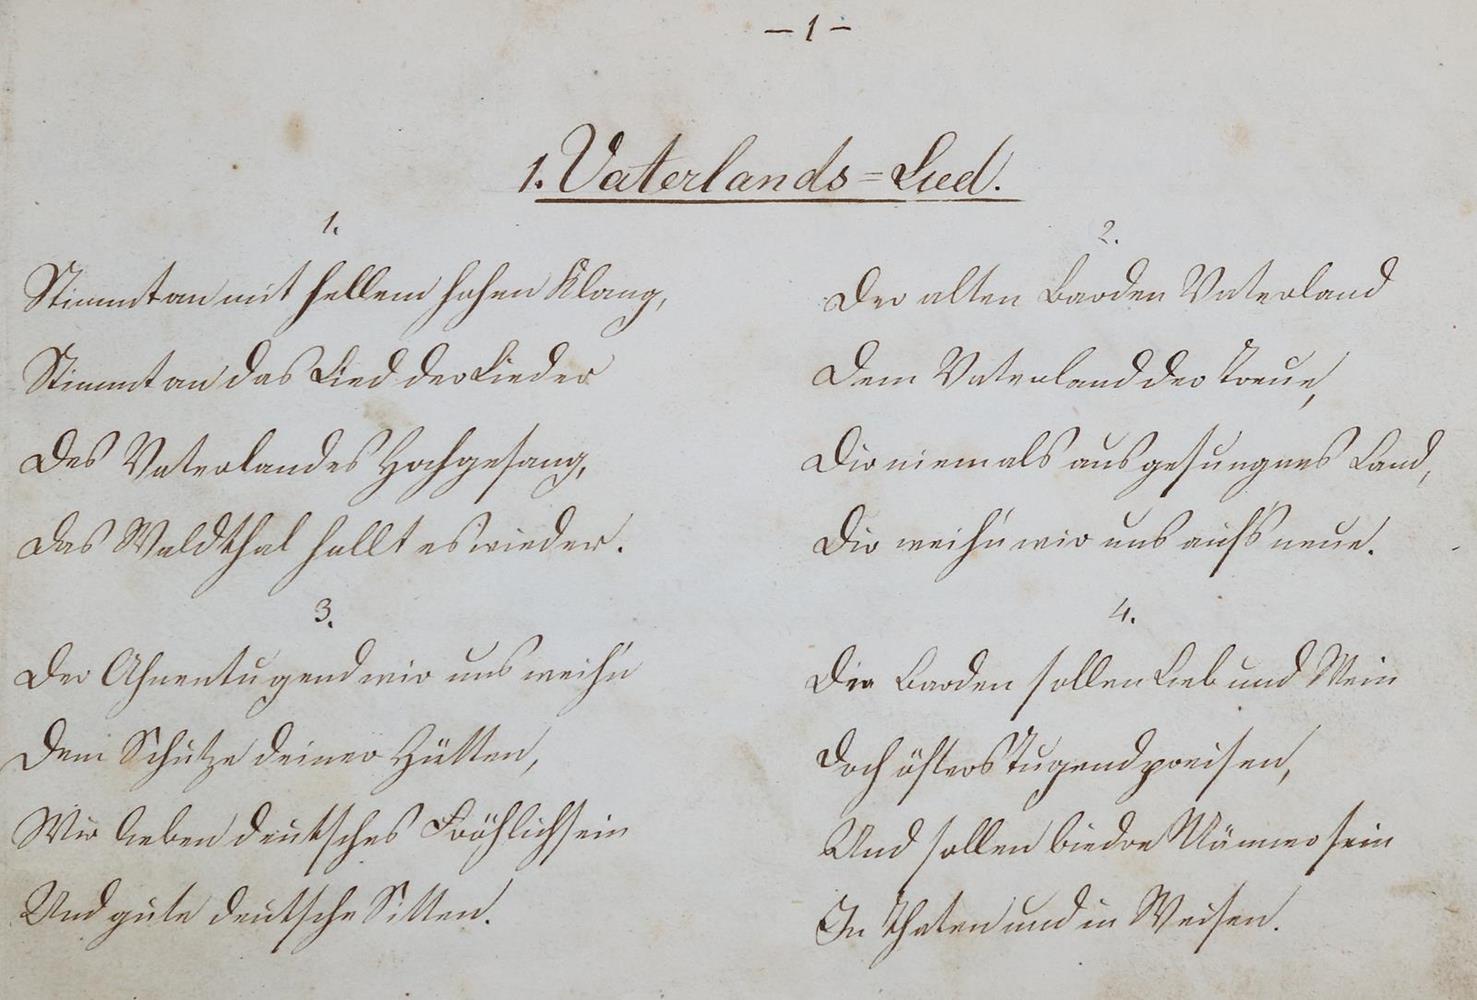 — 1 —
1. Vaterlands=Lied.
1.
Stimmt an mit hellem hohen Klang,
Stimmt an das Lied der Lieder
Des Vaterlandes Hochgesang,
Das Waldthal hallt es wieder.
2.
Der alten Barden Vaterland
Dem Vaterland der Treue,
Dir niemals ausgesungnes Land,
Dir weih'n wir uns auf's neue.
3.
Der Ahnentugend wir uns weih'n
Dem Schutze deiner Hütten,
Wir lieben deutsches Fröhlichsein
Und gute deutsche Sitten.
4.
Die Barden sollen Lieb und Wein
Doch öfters Tugend preisen,
Und sollen biedre Männer sein
In Thaten und in Weisen.